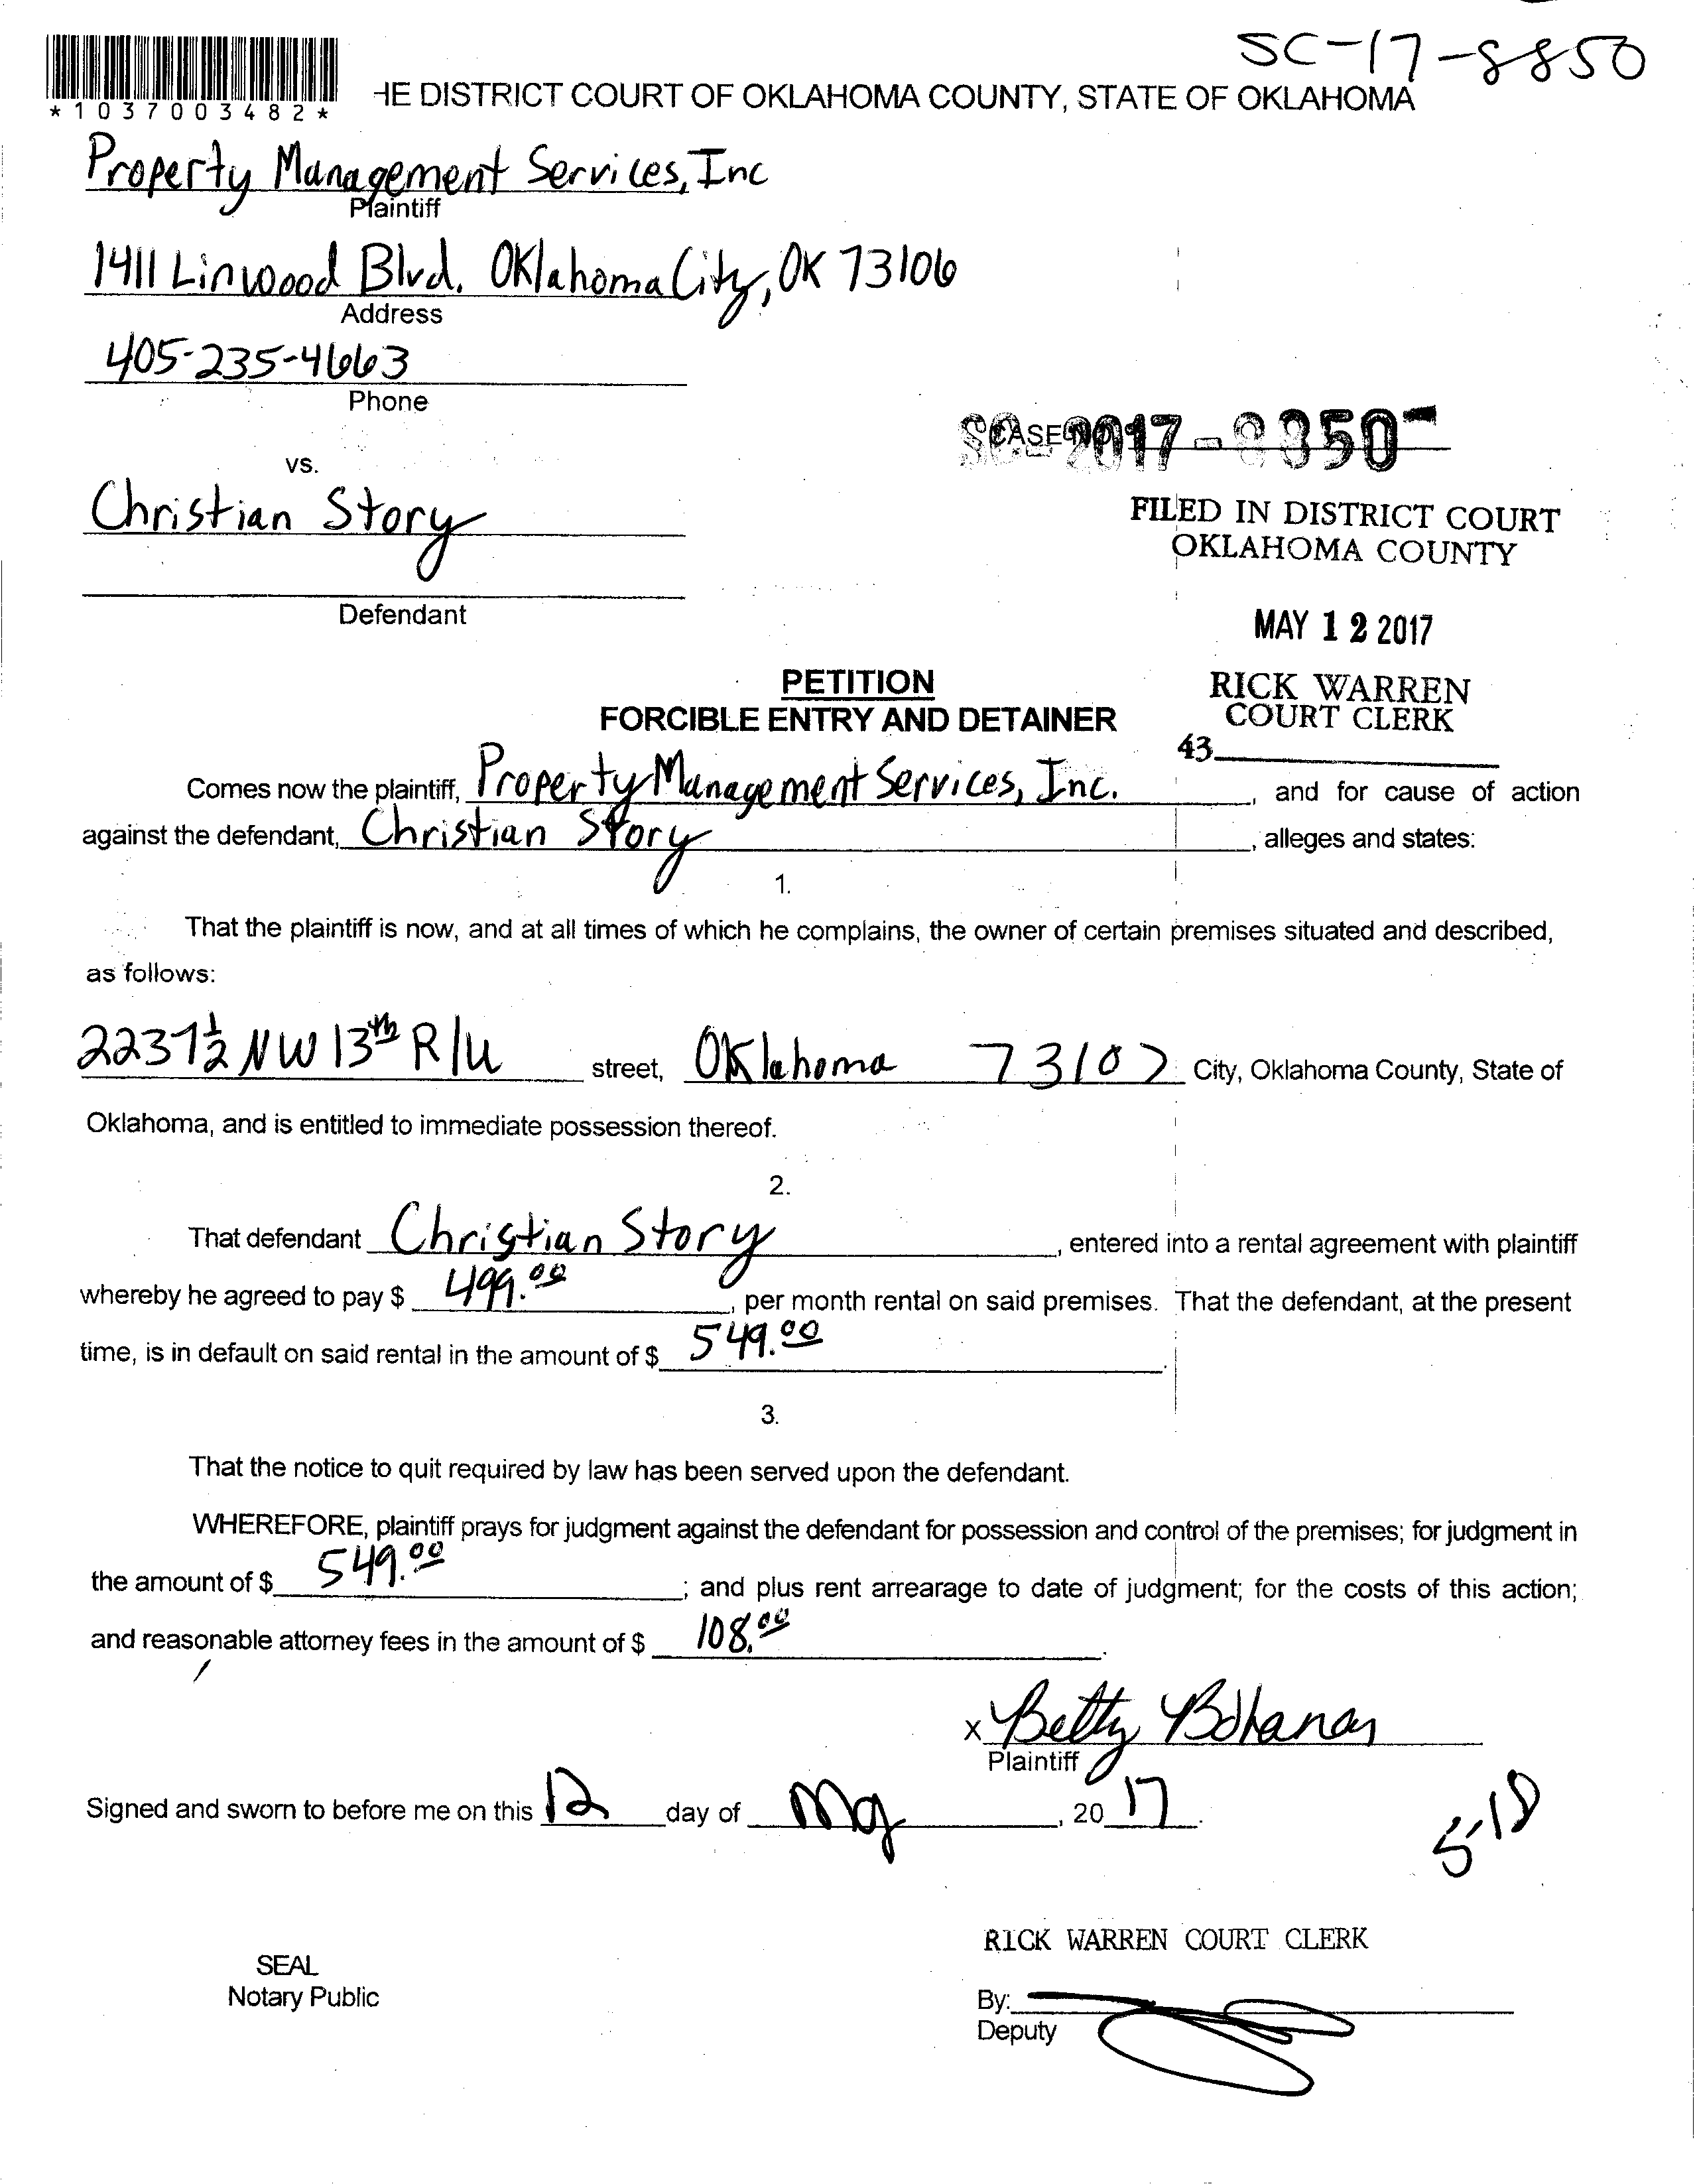 SC-17-8850
*1037003482*
HE DISTRICT COURT OF OKLAHOMA COUNTY, STATE OF OKLAHOMA
Property Management Services, Inc
Plaintiff
1411 Linwood Blvd. Oklahoma City, OK 73106
Address
405-235-4663
Phone
CASE NO.
SC-2017-8850
vs.
Christian Story
FILED IN DISTRICT COURT
OKLAHOMA COUNTY
Defendant
MAY 12 2017
PETITION
FORCIBLE ENTRY AND DETAINER
RICK WARREN
COURT CLERK
43
Comes now the plaintiff, Property Management Services, Inc., and for cause of action
against the defendant, Christian Story, alleges and states:
1.
That the plaintiff is now, and at all times of which he complains, the owner of certain premises situated and described,
as follows:
2237½ NW 13th R/U street, Oklahoma 73107 City, Oklahoma County, State of
Oklahoma, and is entitled to immediate possession thereof.
2.
That defendant Christian Story, entered into a rental agreement with plaintiff
whereby he agreed to pay $ 499.00, per month rental on said premises. That the defendant, at the present
time, is in default on said rental in the amount of $ 549.00.
3.
That the notice to quit required by law has been served upon the defendant.
WHEREFORE, plaintiff prays for judgment against the defendant for possession and control of the premises; for judgment in
the amount of $ 549.00; and plus rent arrearage to date of judgment; for the costs of this action;
and reasonable attorney fees in the amount of $ 108.00.
x Betty Bohanan
Plaintiff
Signed and sworn to before me on this 12 day of May, 2017.
5-18
RICK WARREN COURT CLERK
SEAL
Notary Public
By:
Deputy